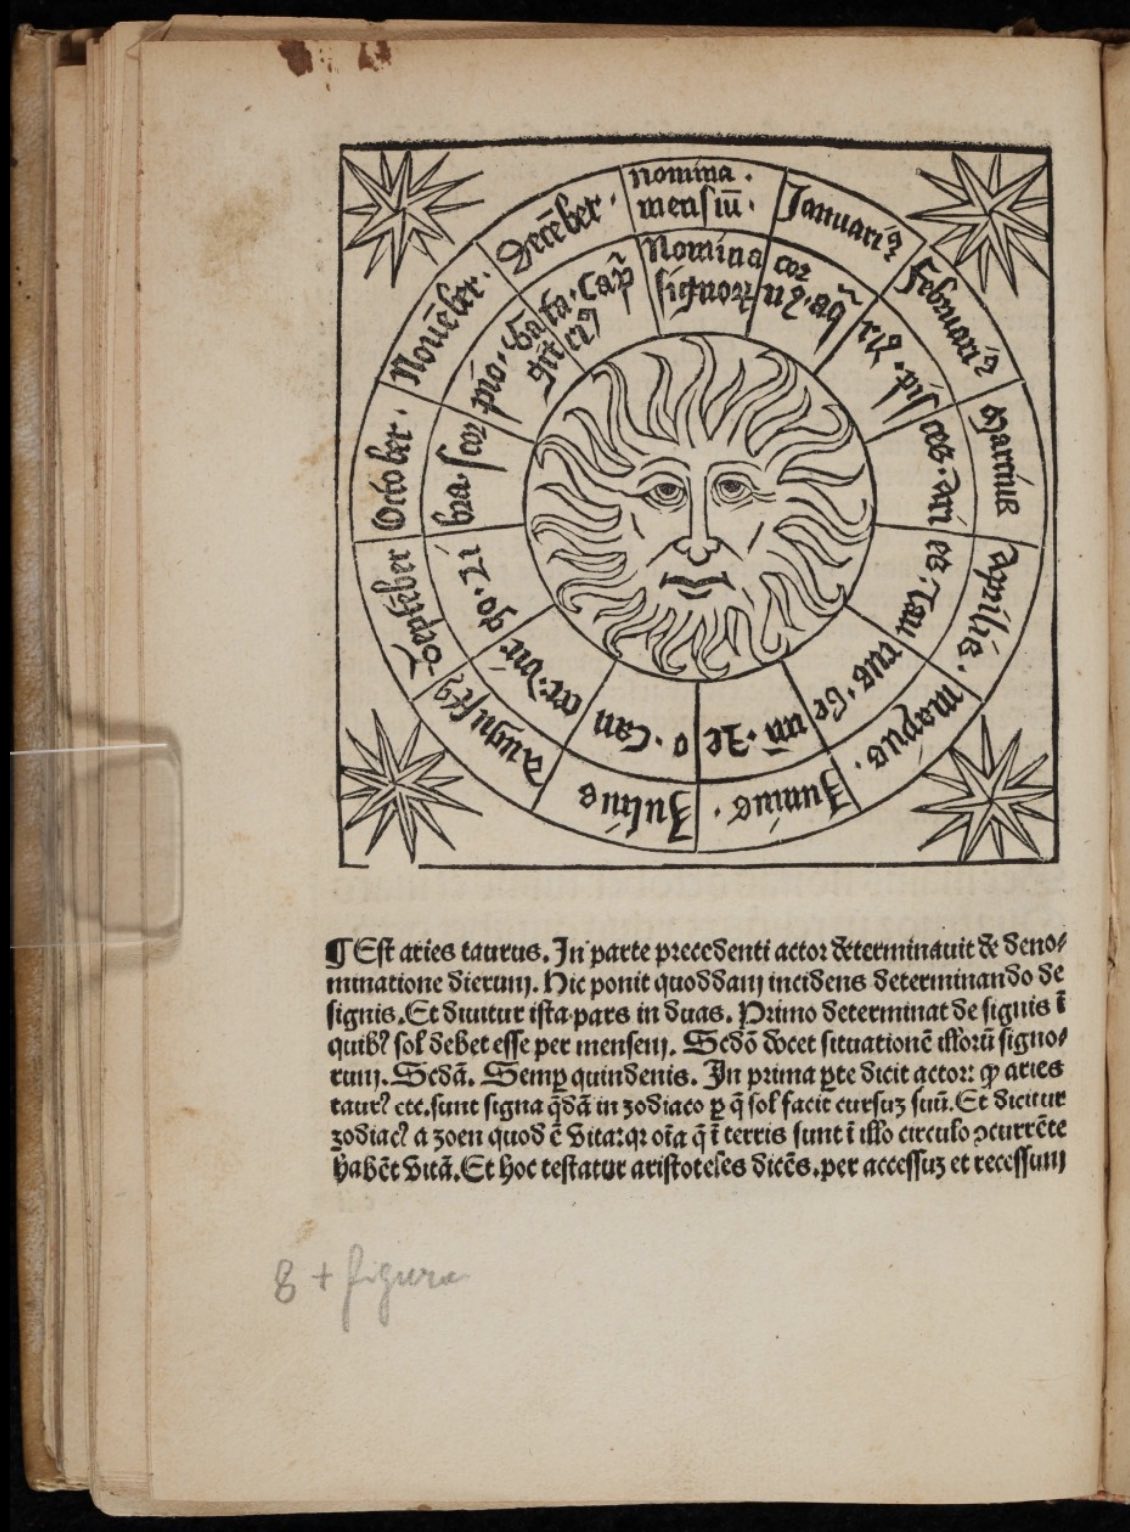 nomina .
mensiū .
Januariꝰ
Februariꝰ
Marcius
Aprilis .
mayus .
Junius .
Julius
Augustꝰ
Septēber
October .
Nouēber .
Decēber .
Nomina
signoꝝ
cor
nꝰ . aq̄
riꝰ . pis
ces . Ari
es . Tau
rus . Ge
mī . Le
o . Can
cer . vir
go . Li
bra . scor
pio . Sa
git
ta . Cap̄
riꝰ
¶ Est aries taurus. In parte precedenti actor determinauit de deno⸗
minatione dierum. Hic ponit quoddam incidens determinando de
signis. Et diuitur ista pars in duas. Primo determinat de signis ī
quibꝰ sol debet esse per mensem. Scdō docet situationē illorū signo⸗
rum. Scdā. Semꝑ quindenis. In prima ꝑte dicit actor: ꝙ aries
taurꝰ etc. sunt signa q̄dā in zodiaco ꝑ q̄ sol facit cursuꝫ suū. Et dicitur
zodiacꝰ a zoen quod ē vita: qꝛ oīa q̄ ī terris sunt ī illo circulo ↄcurrēte
habēt vitā. Et hoc testatur aristoteles dicēs. per accessuꝫ et recessum
8 + figura